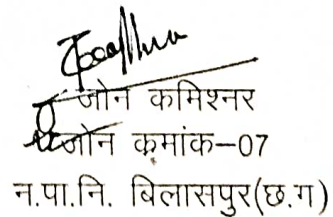 जोन कमिश्नर
जोन क्रमांक-07
न.पा.नि. बिलासपुर(छ.ग)